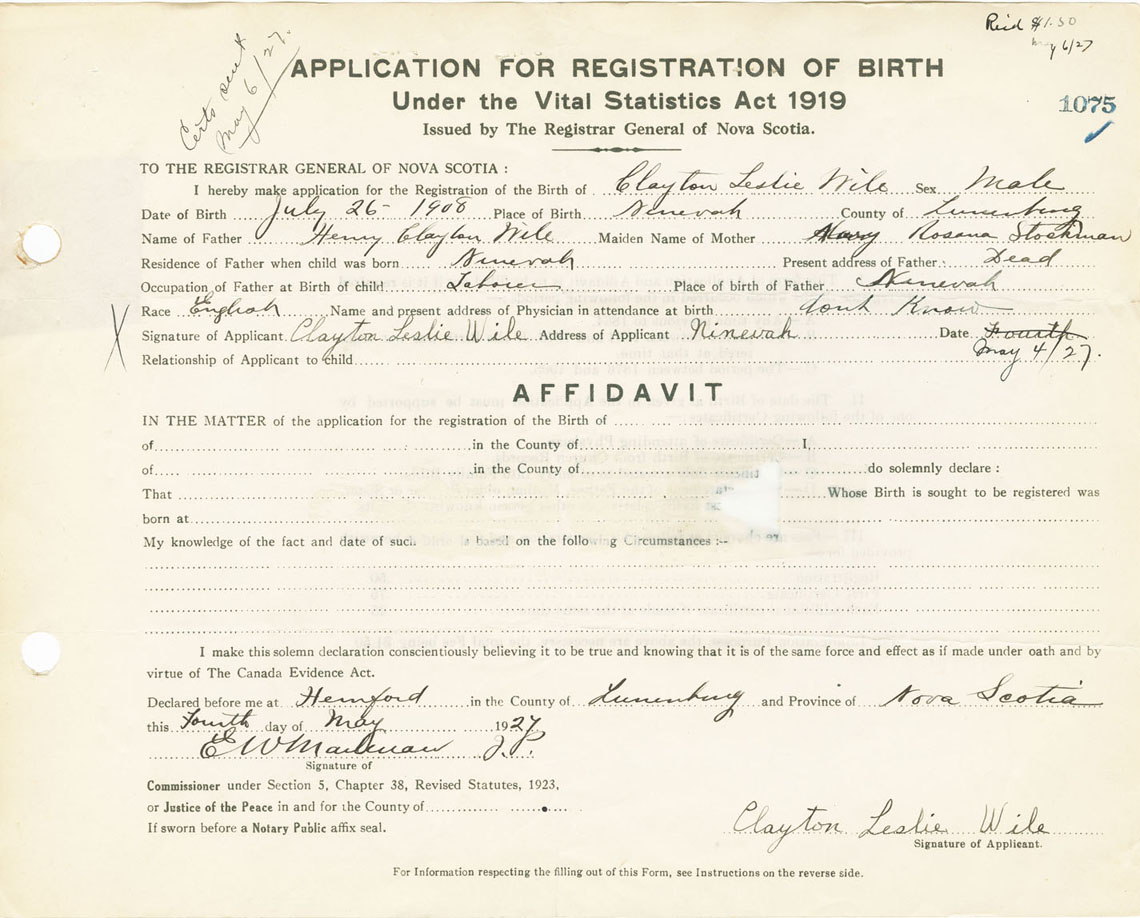 Rec'd $1.50
May 6/27
Certs sent
May 6/27.
APPLICATION FOR REGISTRATION OF BIRTH
Under the Vital Statistics Act 1919
1075
Issued by The Registrar General of Nova Scotia.
TO THE REGISTRAR GENERAL OF NOVA SCOTIA :
I hereby make application for the Registration of the Birth of Clayton Leslie Wile Sex Male
Date of Birth July 26 1908 Place of Birth Ninevah County of Lunenburg
Name of Father Henry Clayton Wile Maiden Name of Mother Mary Rosana Stockman
Residence of Father when child was born Ninevah Present address of Father Dead
Occupation of Father at Birth of child Laborer Place of birth of Father Ninevah
X Race English Name and present address of Physician in attendance at birth dont Know
Signature of Applicant Clayton Leslie Wile Address of Applicant Ninevah Date Fourth
Relationship of Applicant to child May 4/27.
AFFIDAVIT
IN THE MATTER of the application for the registration of the Birth of
of in the County of I,
of in the County of do solemnly declare :
That Whose Birth is sought to be registered was
born at
My knowledge of the fact and date of such is based on the following Circumstances :--
I make this solemn declaration conscientiously believing it to be true and knowing that it is of the same force and effect as if made under oath and by
virtue of The Canada Evidence Act.
Declared before me at Hemford in the County of Lunenburg and Province of Nova Scotia
this Fourth day of May 1927
E W Mailman J.P.
Signature of
Commissioner under Section 5, Chapter 38, Revised Statutes, 1923,
or Justice of the Peace in and for the County of
If sworn before a Notary Public affix seal.
Clayton Leslie Wile
Signature of Applicant.
For Information respecting the filling out of this Form, see Instructions on the reverse side.